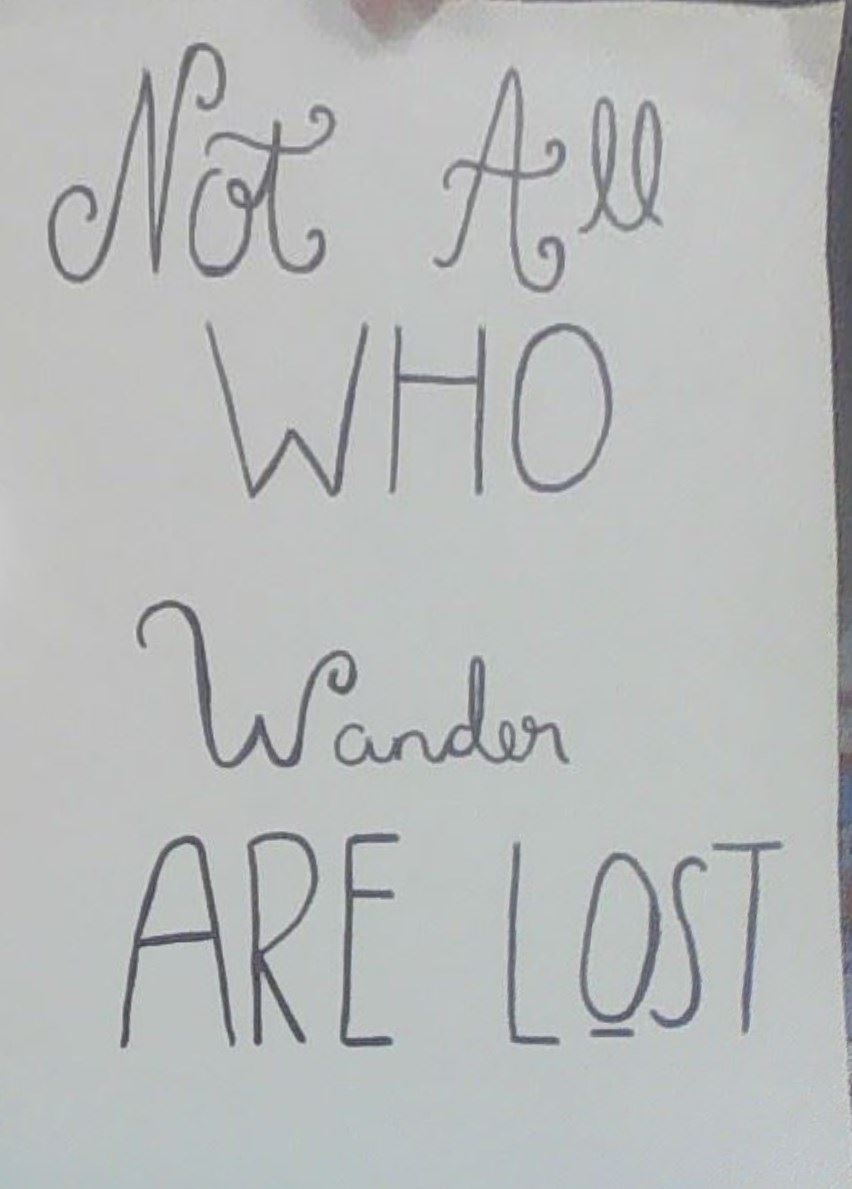 Not All
WHO
Wander
ARE LOST